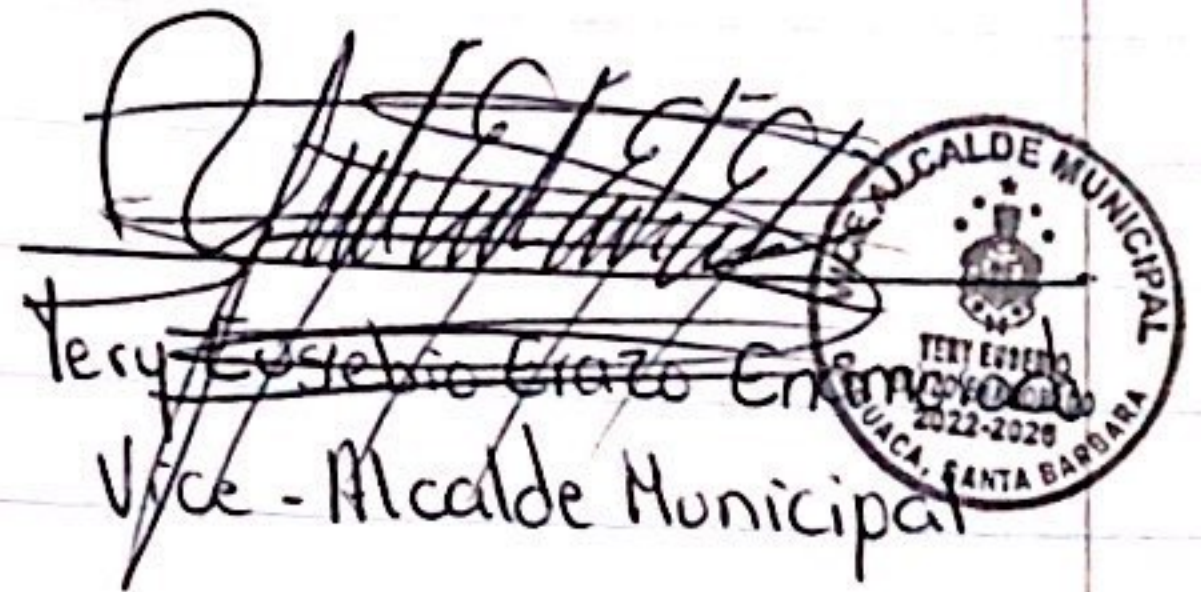 Tery Eusebio Erazo Enamorado
Vice - Alcalde Municipal
VICE ALCALDE MUNICIPAL
TERY EUSEBIO
2022-2026
SANTA BARBARA